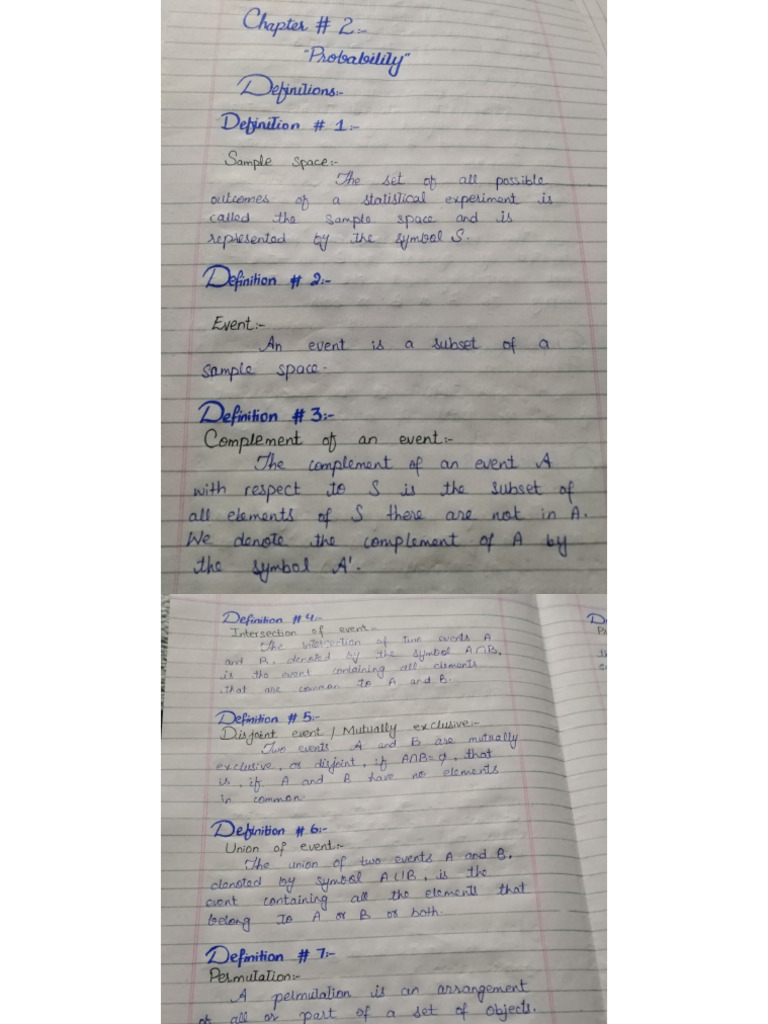 Chapter # 2:-
"Probability"
Definitions:-
Definition # 1:-
Sample space:-
The set of all possible
outcomes of a statistical experiment is
called the sample space and is
represented by the symbol S.
Definition # 2:-
Event:-
An event is a subset of a
sample space.
Definition # 3:-
Complement of an event:-
The complement of an event A
with respect to S is the subset of
all elements of S there are not in A.
We denote the complement of A by
the symbol A'.
Definition # 4:-
Intersection of event:-
The intersection of two events A
and B, denoted by the symbol A∩B,
is the event containing all elements
that are common to A and B.
Definition # 5:-
Disjoint event / Mutually exclusive:-
Two events A and B are mutually
exclusive, or disjoint, if A∩B=φ, that
is, if A and B have no elements
in common.
Definition # 6:-
Union of event:-
The union of two events A and B,
denoted by symbol A∪B, is the
event containing all the elements that
belong to A or B or both.
Definition # 7:-
Permutation:-
A permutation is an arrangement
of all or part of a set of objects.